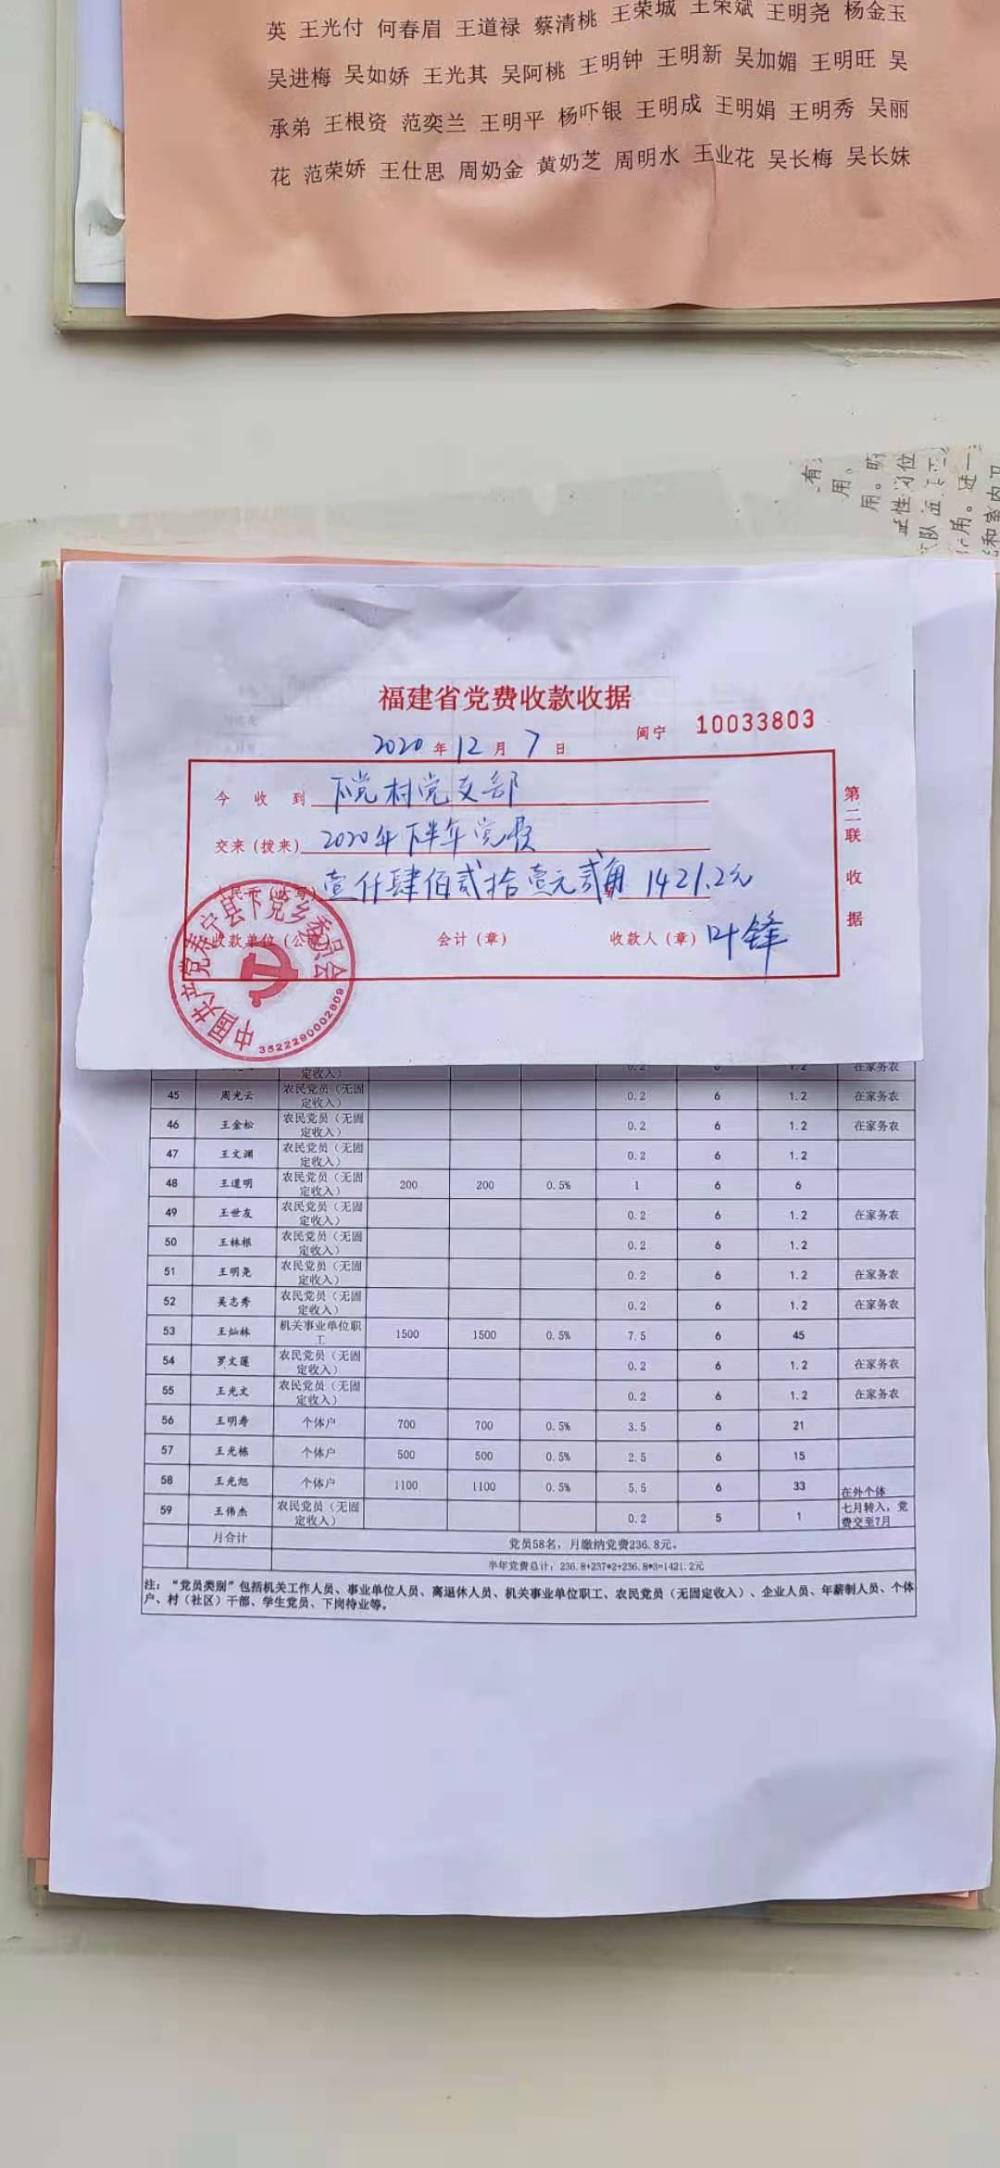 英 王光付 何春眉 王道禄 蔡清桃 王荣城 王荣斌 王明尧 杨金玉
吴进梅 吴如娇 王光其 吴阿桃 王明钟 王明新 吴加媚 王明旺 吴
承弟 王根资 范奕兰 王明平 杨吓银 王明成 王明娟 王明秀 吴丽
花 范荣娇 王仕思 周奶金 黄奶芝 周明水 王业花 吴长梅 吴长妹
福建省党费收款收据
2020年12月7日 闽宁 10033803
今收到 下党村党支部
交来(拨来) 2020年下半年党费
壹仟肆佰贰拾壹元贰角 1421.2元
收款单位(公 会计(章) 收款人(章) 叶锋
第二联 收据
中国共产党寿宁县下党乡委员会
3522290002809
定收入) 0.2 6 1.2 在家务农
45 周光云 农民党员(无固定收入) 0.2 6 1.2 在家务农
46 王金松 农民党员(无固定收入) 0.2 6 1.2 在家务农
47 王文渊 农民党员(无固定收入) 0.2 6 1.2
48 王道明 农民党员(无固定收入) 200 200 0.5% 1 6 6
49 王世友 农民党员(无固定收入) 0.2 6 1.2 在家务农
50 王林根 农民党员(无固定收入) 0.2 6 1.2
51 王明尧 农民党员(无固定收入) 0.2 6 1.2 在家务农
52 吴志秀 农民党员(无固定收入) 0.2 6 1.2 在家务农
53 王灿林 机关事业单位职工 1500 1500 0.5% 7.5 6 45
54 罗文莲 农民党员(无固定收入) 0.2 6 1.2 在家务农
55 王光文 农民党员(无固定收入) 0.2 6 1.2 在家务农
56 王明寿 个体户 700 700 0.5% 3.5 6 21
57 王光栋 个体户 500 500 0.5% 2.5 6 15
58 王光旭 个体户 1100 1100 0.5% 5.5 6 33 在外个体
59 王伟杰 农民党员(无固定收入) 0.2 5 1 七月转入，党费交至7月
月合计 党员58名，月缴纳党费236.8元。
半年党费总计：236.8+237*2+236.8*3=1421.2元
注：“党员类别”包括机关工作人员、事业单位人员、离退休人员、机关事业单位职工、农民党员(无固定收入)、企业人员、年薪制人员、个体
户、村(社区)干部、学生党员、下岗待业等。